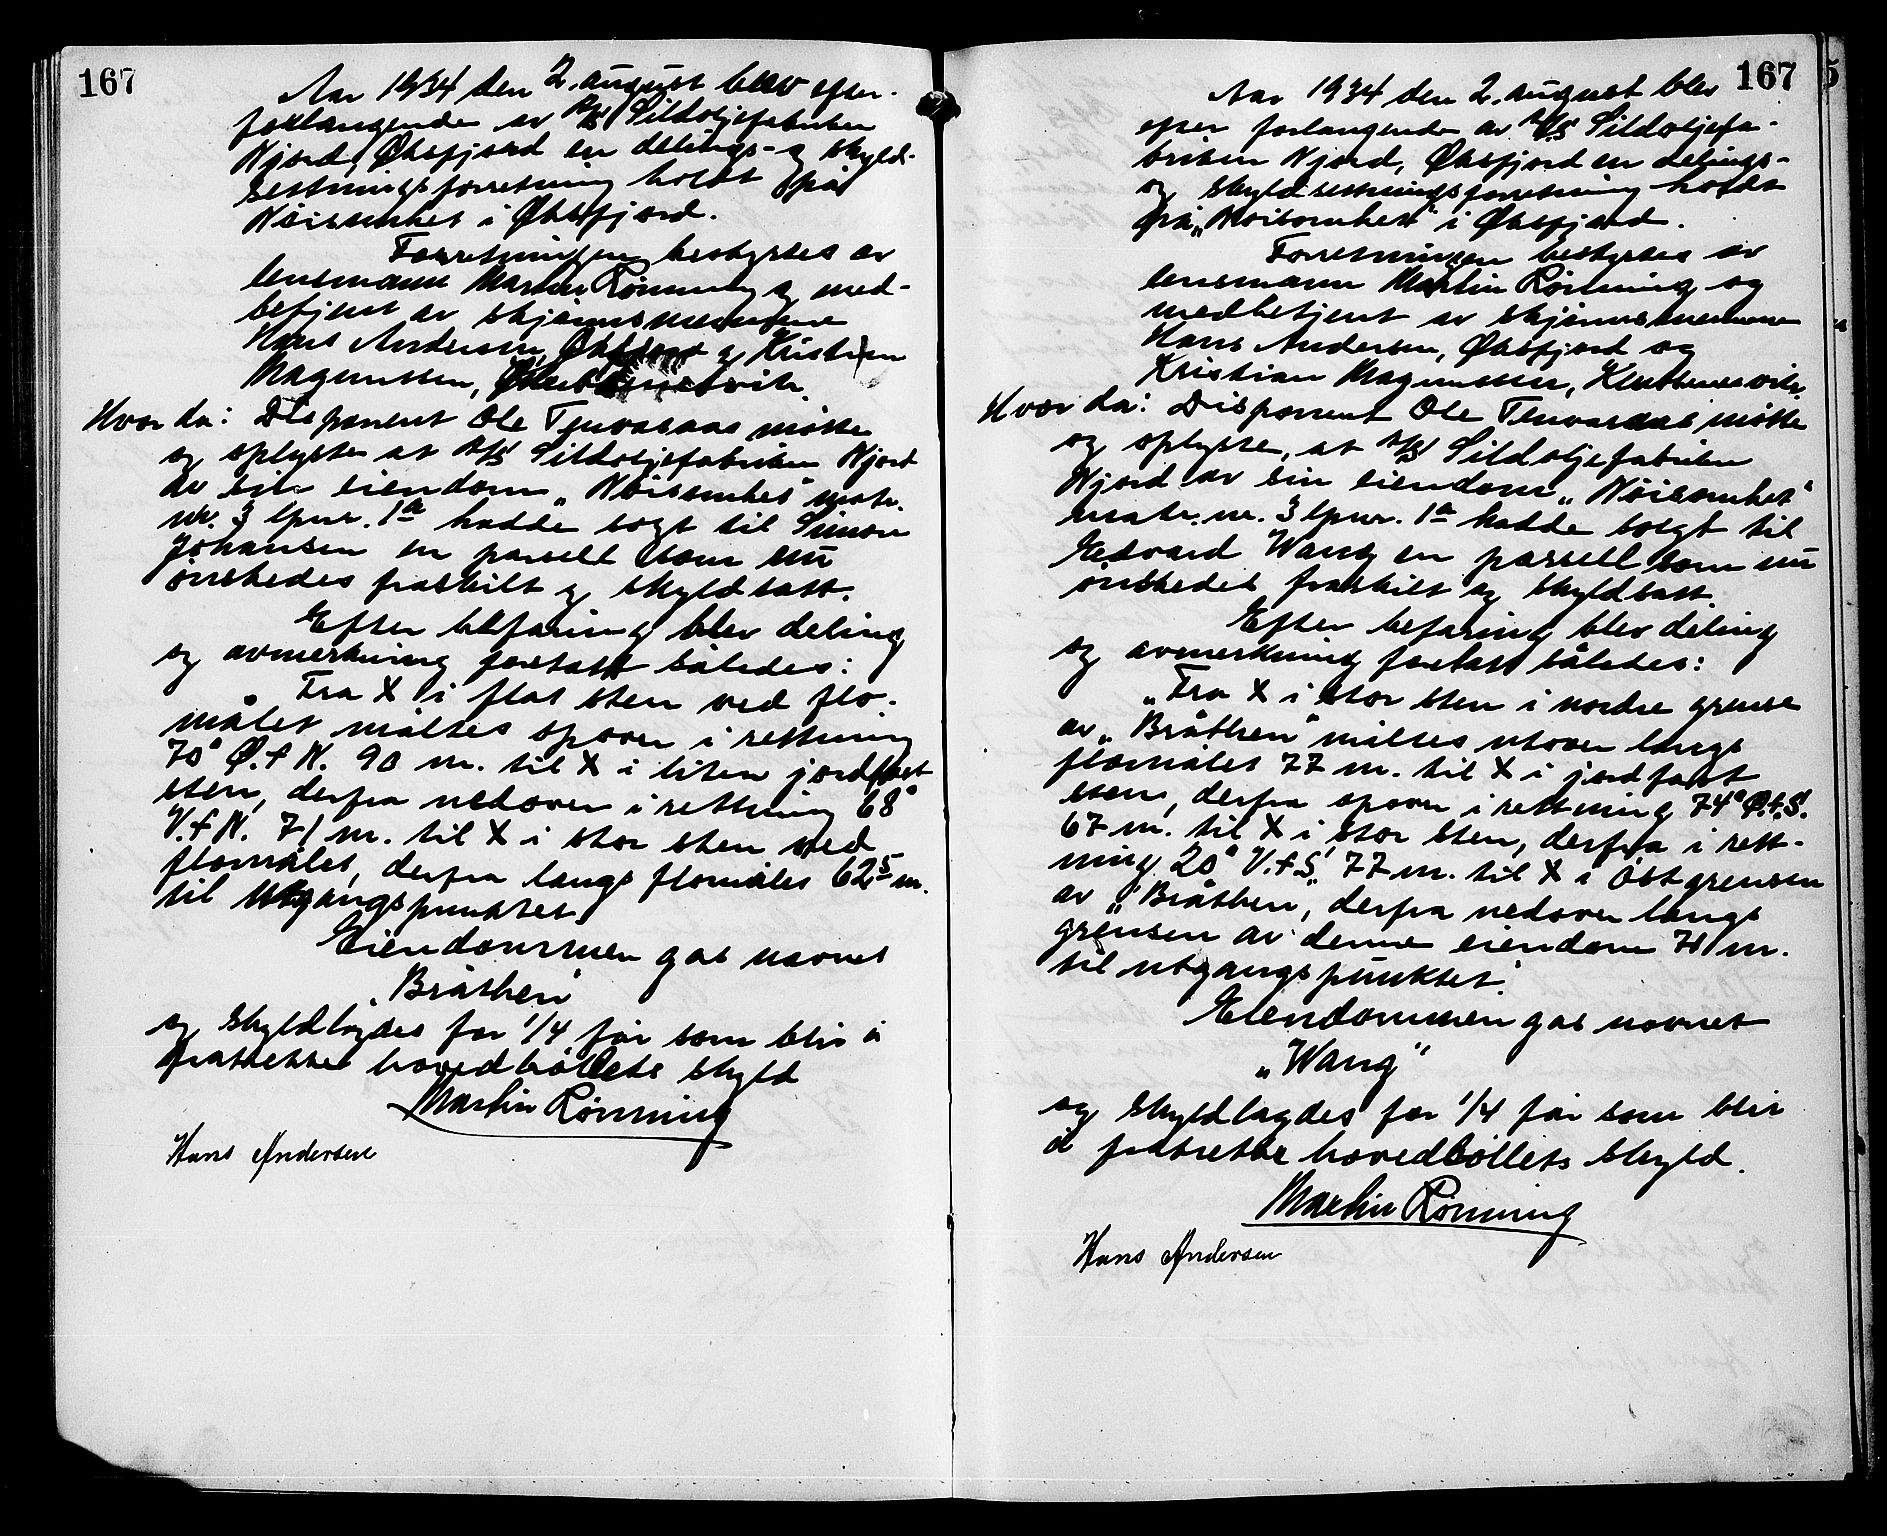 167
Aar 1934 den 2. august blev efter
forlangende av A/S Sildoljefabriken
Njord, Øksfjord en delings- og skyld-
setningsforretning holdt på
Nøisomhet i Øksfjord.
Forretningen bestyrtes av
lensmann Martin Rønning og med-
betjent av skjønnsmennene
Hans Andersen, Øksfjord og Kristian
Magnussen,
Hvor da: Disponent Ole Tenvasaas møtte
og oplyste at A/S Sildoljefabriken Njord
av sin eiendom „Nøisomhet" matr.
nr. 3 lpnr. 1a hadde solgt til Simon
Johansen en parsell som nu
ønskedes fraskilt og skyldsatt.
Efter befaring blev deling
og avmerkning foretatt således:
„Fra X i flat sten ved flo-
målet måltes opover i rettning
70° Ø.f.N. 90 m. til X i liten jordfast
sten, derfra nedover i rettning 68°
V.f.N. 71 m. til X i stor sten ved
flomålet, derfra langs flomålet 62⁵ m.
til utgangspunktet.
Eiendommen gas navnet
„Bråthen"
og skyldlagdes for 1/4 før som blir å
fratrekke hovedbølets skyld
Martin Rønning
Hans Andersen
167
Aar 1934 den 2. august blev
efter forlangende av A/S Sildoljefa-
briken Njord, Øksfjord en delings-
og skyldsettningsforretning holdt
på „Nøisomhet" i Øksfjord.
Forretningen bestyrtes av
lensmann Martin Rønning og
medbetjent av skjønnsmennene
Hans Andersen, Øksfjord og
Kristian Magnussen, Klubbenesvik.
Hvor da: Disponent Ole Tenvasaas møtte
og oplyste, at A/S Sildoljefabriken
Njord av sin eiendom „Nøisomhet"
matr. nr. 3 lpnr. 1a hadde solgt til
Edvard Wang en parsell som nu
ønskedes fraskilt og skyldsatt.
Efter befaring blev deling
og avmerkning foretatt således:
„Fra X i stor sten i nordre grense
av „Bråthen" måltes utover langs
flomålet 77 m. til X i jordfast
sten, derfra opover i rettning 74° Ø.f.S.
67 m. til X i stor sten, derfra i rett-
ning 20° V.f.S. 77 m. til X i østgrensen
av „Bråthen", derfra nedover langs
grensen av denne eiendom 71 m.
til utgangspunktet."
Eiendommen gas navnet
„Wang"
og skyldlagdes for 1/4 før som blir
å fratrekke hovedbøllets skyld.
Martin Rønning
Hans Andersen